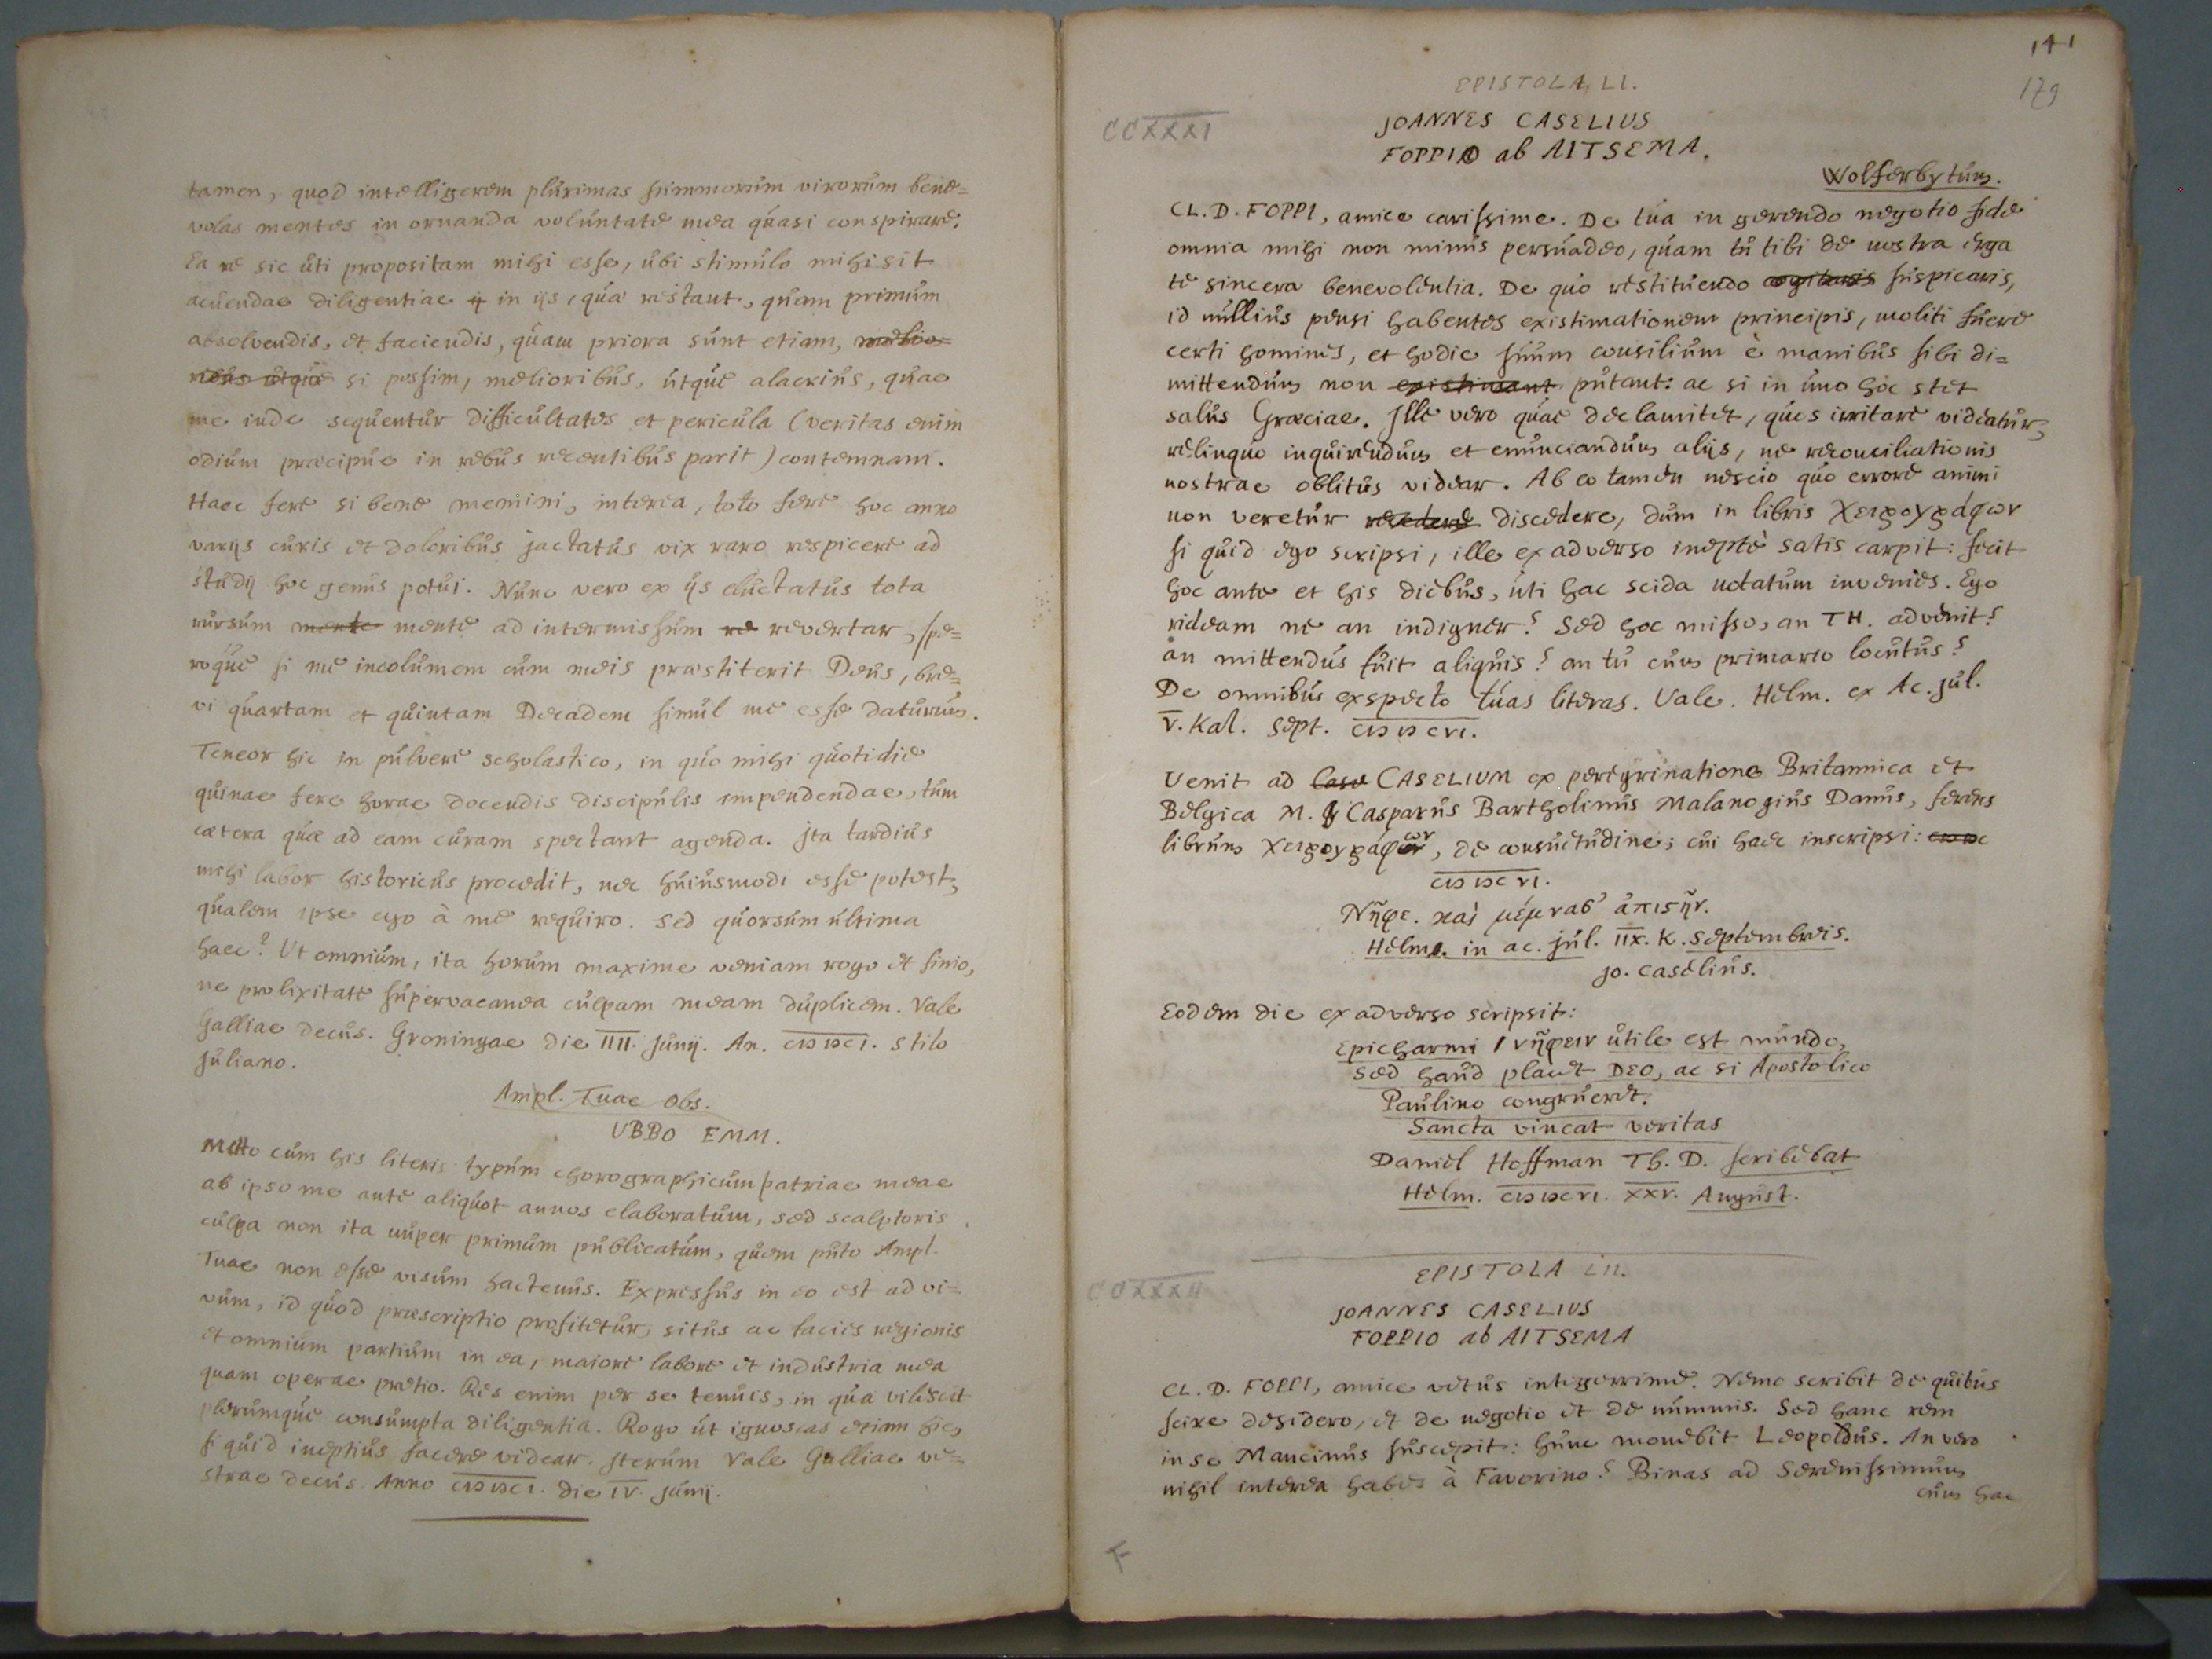 tamen, quod intelligerem plurimas summorum virorum bene=
volas mentes in ornanda voluntate mea quasi conspirare.
Ea re sic uti propositam mihi esse, ubi stimulo mihi sit
acuendae diligentiae in ijs, quae restant, quam primum
absolvendis, et faciendis, quam priora sunt etiam, melio=
ribus utque si possim, melioribus, utque alacrius, quae
me inde sequentur difficultates et pericula (veritas enim
odium praecipue in rebus recentibus parit) contemnam.
Haec fere si bene memini, interea, toto fere hoc anno
varijs curis et doloribus jactatus vix raro respicere ad
studij hoc genus potui. Nunc vero ex ijs eluctatus tota
rursum mente mente ad intermissum re revertar, spe=
roque si me incolumem cum meis praestiterit Deus, bre=
vi quartam et quintam Decadem simul me esse daturum.
Teneor hic in pulvere scholastico, in quo mihi quotidie
quinae fere horae docendis discipulis impendendae, tum
caetera quae ad eam curam spectant agenda. Ita tardius
mihi labor historicus procedit, nec huiusmodi esse potest,
qualem ipse ego à me requiro. Sed quorsum ultima
haec? Ut omnium, ita horum maxime veniam rogo et finio,
ne prolixitate supervacanea culpam meam duplicem. Vale
Galliae decus. Groningae die IIII. Junij. An. CIↃIↃCI. stilo
Juliano.
Ampl. Tuae Obs.
UBBO EMM.
Mitto cum his literis typum chorographicum patriae meae
ab ipso me ante aliquot annos elaboratum, sed scalptoris
culpa non ita nuper primum publicatum, quem puto Ampl.
Tuae non esse visum hactenus. Expressus in eo est ad vi=
vum, id quod praescriptio profitetur, situs ac facies regionis
et omnium partium in ea, maiore labore et industria mea
quam operae pretio. Res enim per se tenuis, in qua vilescit
plerumque consumpta diligentia. Rogo ut ignoscas etiam hic,
si quid ineptius facere videar. Iterum Vale Galliae ve=
strae decus. Anno CIↃIↃCI. die IV. Junij.
141
179
EPISTOLA LI.
CCXXXI
JOANNES CASELIUS
FOPPIO ab AITSEMA.
Wolferbytum.
CL. D. FOPPI, amice carissime. De tua in gerendo negotio fide
omnia mihi non minus persuadeo, quam tu tibi de nostra erga
te sincera benevolentia. De quo restituendo cogitaris suspicaris,
id nullius pensi habentes existimationem principis, moliti fuere
certi homines, et hodie suum consilium è manibus sibi di=
mittendum non existimant putant: ac si in uno hoc stet
salus Graeciae. Ille vero quae declamitet, quos irritare videatur,
relinquo inquirendum et enunciandum alijs, ne reconciliationis
nostrae oblitus videar. Ab eo tamen nescio quo errore animi
non veretur recedere discedere, dum in libris χειρογράφων
si quid ego scripsi, ille ex adverso ineptè satis carpit: fecit
hoc ante et his diebus, uti hac scida notatum invenies. Ego
rideam ne an indigner? Sed hoc misso, an TH. advenit?
an mittendus fuit aliquis? an tu cum primario locutus?
De omnibus exspecto tuas literas. Vale. Helm. ex Ac. Jul.
V. Kal. Sept. CIↃIↃCVI.
Venit ad Case CASELIUM ex peregrinatione Britannica et
Belgica M. Casparus Bartholinus Malanogius Danus, ferens
librum χειρογράφων, de consuetudine; cui haec inscripsi:
CIↃIↃCVI.
Νῆφε. καὶ μέμνασ' ἀπιστῆν.
Helms. in ac. Jul. IIX. K. Septembreis.
Jo. Caselius.
Eodem die ex adverso scripsit:
Epicharmi νῆφειν utile est mundo,
Sed haud placet DEO, ac si Apostolico
Paulino congrueret.
Sancta vincat veritas
Daniel Hoffman Th. D. scribebat
Helm. CIↃIↃCVI. XXV. August.
EPISTOLA LII.
CCXXXII
JOANNES CASELIUS
FOPPIO ab AITSEMA
CL. D. FOPPI, amice vetus integerrime. Nemo scribit de quibus
scire desidero, et de negotio et de nummis. Sed hanc rem
in se Mancinus suscepit: hunc monebit Leopoldus. An vero
nihil interea habes à Favorino? Binas ad Serenissimum
cum hac
F